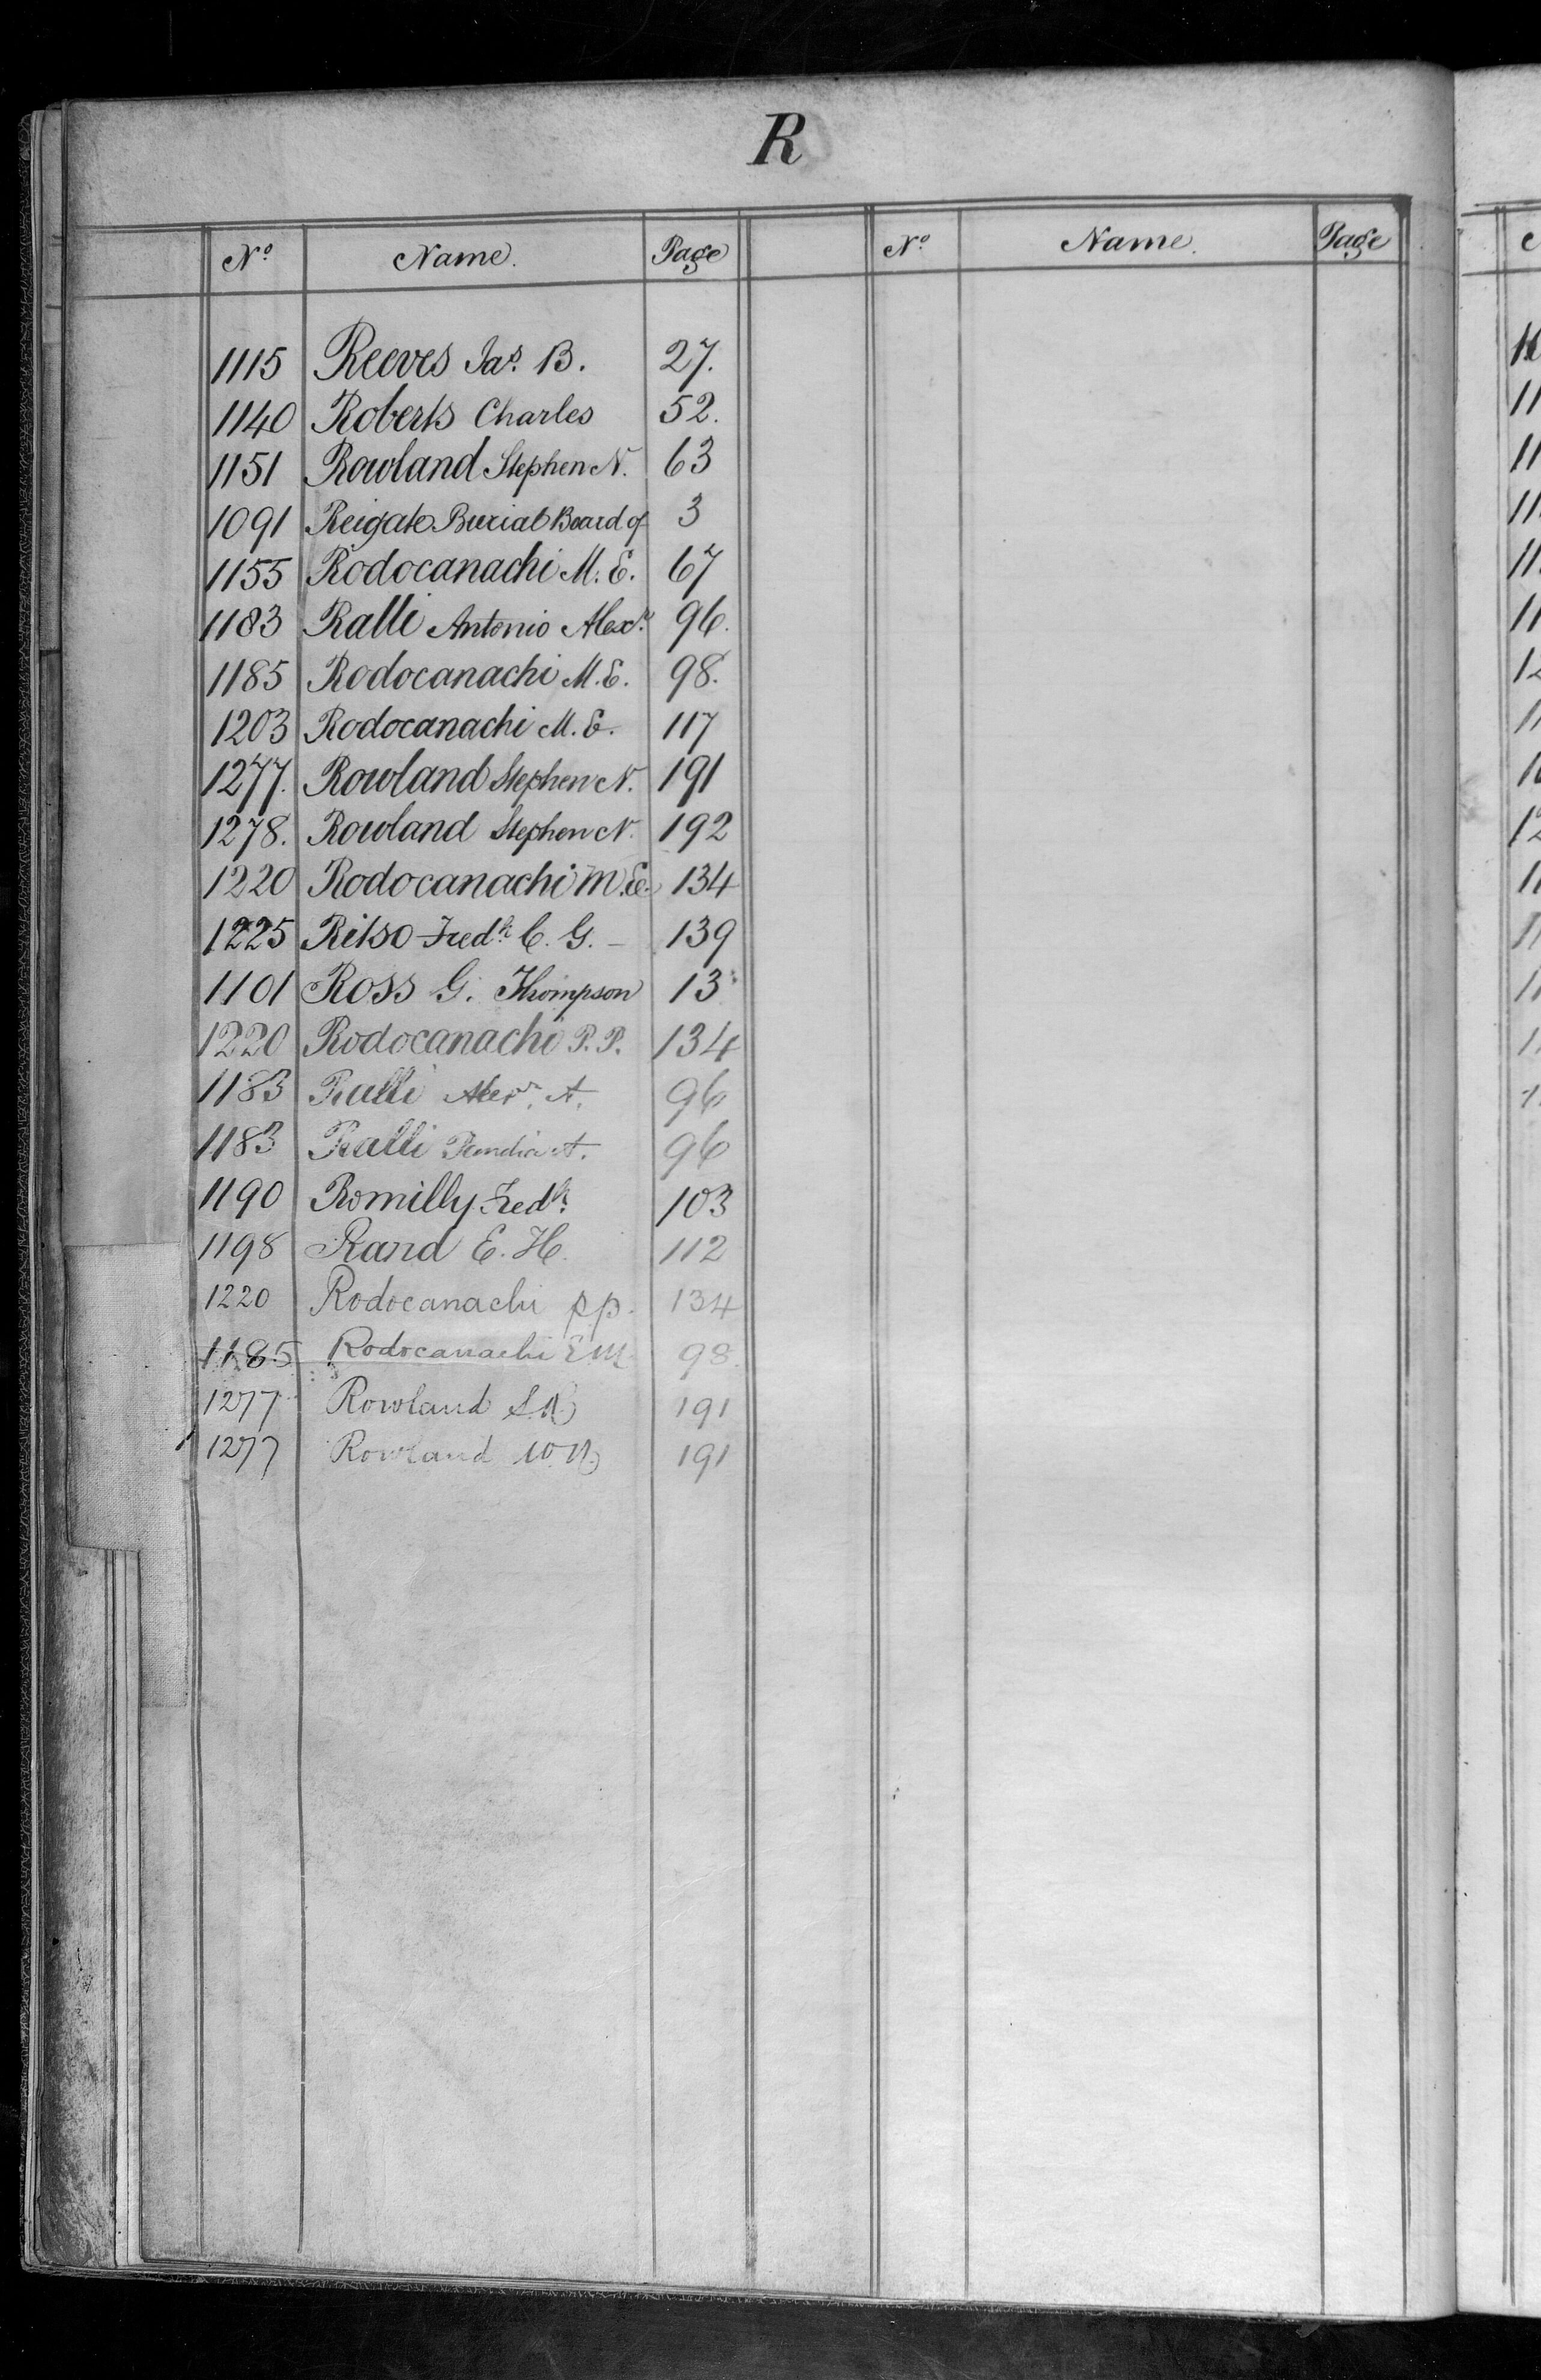 R
No. Name. Page No. Name. Page
1115 Reeves Jas. B. 27.
1140 Roberts Charles 52.
1151 Rowland Stephen N. 63
1091 Reigate Burial Board of 3
1155 Rodocanachi M. E. 67
1183 Ralli Antonio Alexr. 96.
1185 Rodocanachi M. E. 98.
1203 Rodocanachi M. E. 117
1277. Rowland Stephen N. 191
1278. Rowland Stephen N. 192
1220 Rodocanachi M. E. 134
1225 Ritso Fredk. C. G. – 139
1101 Ross G. Thompson 13
1220 Rodocanachi P. P. 134
1183 Ralli Alexr. A. 96
1183 Ralli Pandia A. 96
1190 Romilly Fredk. 103
1198 Rand E. H. 112
1220 Rodocanachi pp. 134
1185 Rodocanachi E M 98.
1277 Rowland S. N. 191
1277 Rowland W. N. 191